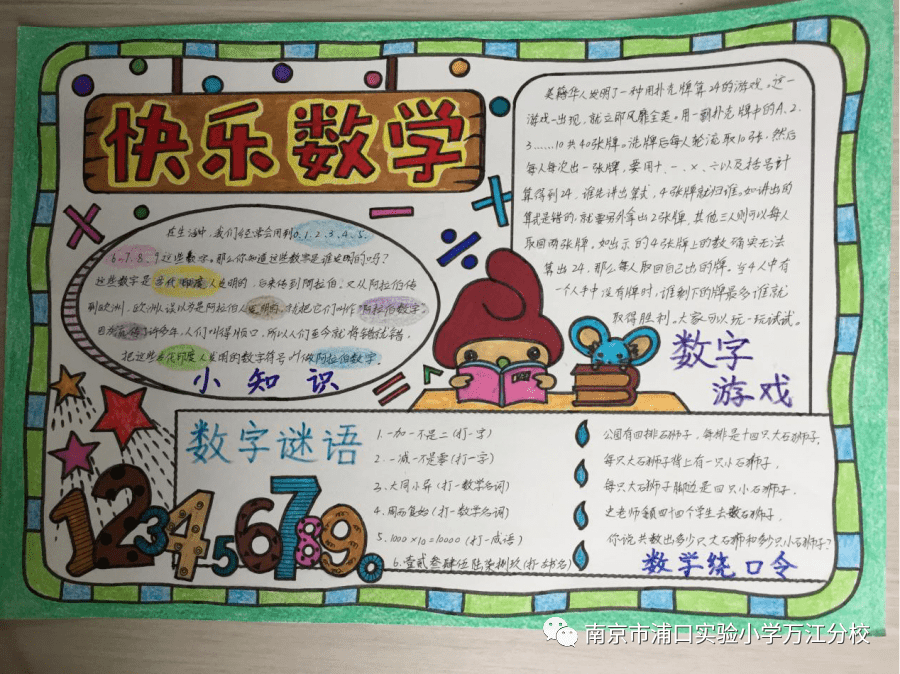 快乐数学
在生活中,我们经常会用到0、1、2、3、4、5、
6、7、8、9这些数字。那么你知道这些数字是谁发明的吗?
这些数字是古代印度人发明的,后来传到阿拉伯,又从阿拉伯传
到欧洲,欧洲人误以为是阿拉伯人发明的,就把它们叫作"阿拉伯数字"。
因为流传了许多年,人们叫得顺口,所以人们至今就将错就错,
把这些古代印度人发明的数字符号叫做阿拉伯数字。
小知识
吴籍华人发明了一种用扑克牌算24的游戏。这一
游戏一出现,就立即风靡全美。用一副扑克牌中的A、2、
3……10共40张牌。洗牌后每人轮流取10张,然后
每人每次出一张牌,要用+、-、×、÷以及括号计
算得到24,谁先讲出算式,4张牌就归谁。如讲出的
算式是错的,就要另外拿出2张牌,其他三人则可以每人
取回两张牌,如出示的4张牌上的数确实无法
算出24,那么每人取回自己出的牌,当4人中有
一个人手中没有牌时,谁剩下的牌最多谁就
取得胜利。大家可以玩一玩试试。
数字
游戏
数字谜语
1.一加一不是二(打一字)
2.一减一不是零(打一字)
3.大同小异(打一数学名词)
4.周而复始(打一数学名词)
5.1000×10=10000(打一成语)
6.壹贰叁肆伍陆柒捌玖(打一书名)
1 2 3 4 5 6 7 8 9 0
公园有四排石狮子,每排是十四只大石狮子,
每只大石狮子背上有一只小石狮子,
每只大石狮子脚边是四只小石狮子,
史老师领四十四个学生去数石狮子,
你说共数出多少只大石狮和多少只小石狮子?
数学绕口令
南京市浦口实验小学万江分校